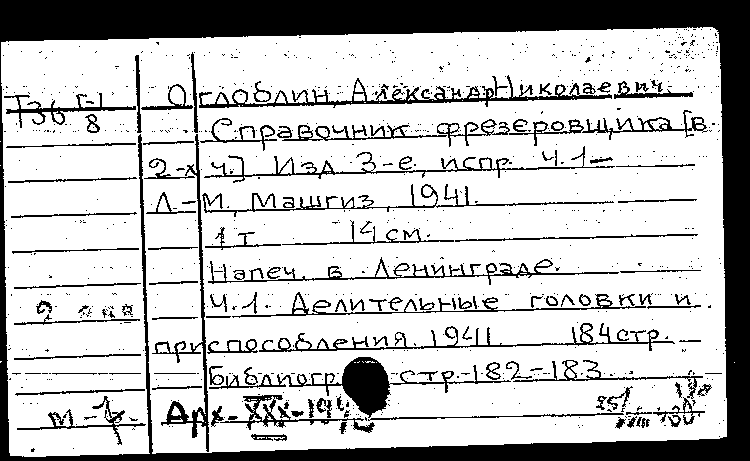 Оглоблин, Александр Николаевич.
Т36 8
Справочник фрезеровщика [в
2-х ч.]. Изд. 3-е, испр. Ч.1—
Л-М, Машгиз, 1941.
1 т 14 см.
Напеч. в Ленинграде.
Ч.1. Делительные головки и
приспособления. 1941. 184 стр.
Библиогр. стр. 182-183.
2 экз
Арх-XXX-194